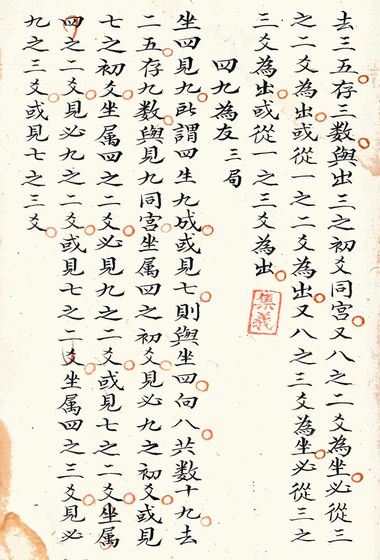 去三五存三數與出三之初爻同宮又八之二爻為坐必從三
之二爻為出或從一之二爻為出又八之三爻為坐必從三之
三爻為出或從一之三爻為出
四九為友三局
集義
坐四見九所謂四生九成或見七則與坐四向八共數十九去
二五存九數與見九同宮坐属四之初爻見必九之初爻或見
七之初爻坐属四之二爻必見九之二爻或見七之二爻坐属
四之二爻見必九之二爻或見七之二爻坐属四之三爻見必
九之三爻或見七之三爻